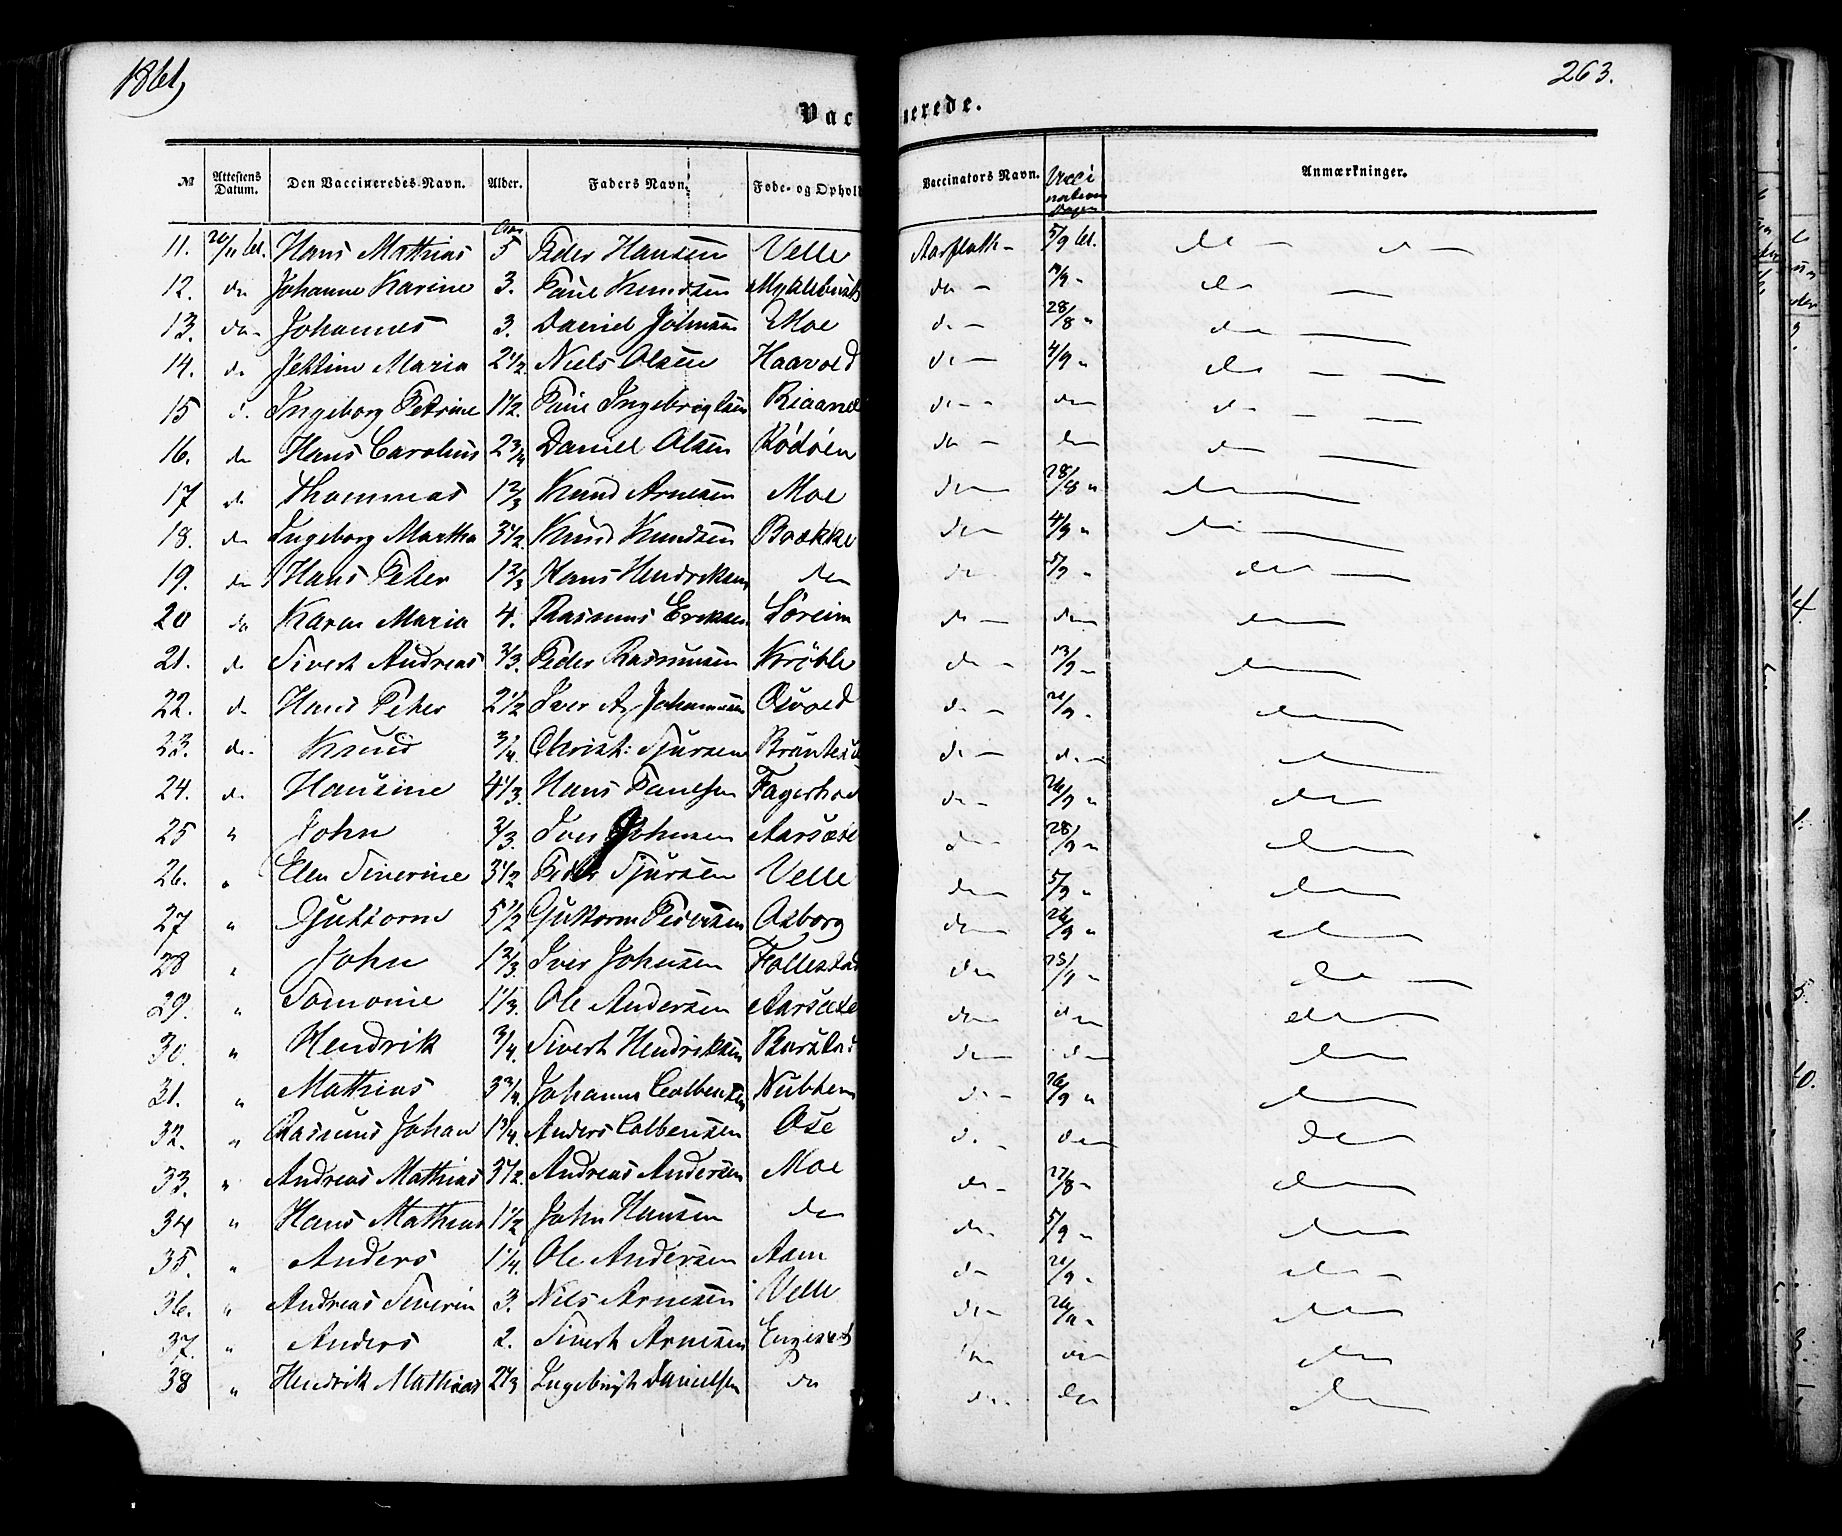 1861,
263.
Vaccinerede.
№ Attestens Datum. Den Vaccineredes Navn. Alder. Faders Navn. Føde- og Ophold Vaccinators Navn. Vacci nations Dagen Anmærkninger.
Aar
11. 20/11 61. Hans Mathias 5 Peder Hansen Velle Aarflath - 5/9 61. do - do -
12. do Johanne Karine 3. Paul Knudsen Myklebust do - do
13. do - Johannes 3. Daniel Johnsen Moe do - 28/8 " do
14. do Jettine Maria 2 1/2 Niels Olsen Haavold do - 4/9 " do
15 d. Ingeborg Petrine 1 1/2 Paul Ingebrigtsen Riaand do - do do
16. do Hans Carolius 2 3/4 Daniel Olsen Rödöen do - do do
17 do Thommas 1 2/3 Knud Arnesen Moe do 28/8 " do
18. do Ingeborg Martha 3 1/2 Knud Knudsen Bække do 4/9 " do
19. do Hans Peter 1 2/3 Hans Hendriksen do do 5/9 - do
20 do Karen Maria 4. Rasmus Eriksen Löreim do - do do
21. do Sivert Andreas 2/3. Peder Rasmusen Kröble do - 13/9 - do
22. do Hans Peter 2 1/2 Iver A. Johannesen Osvold do - do
23. do Knud 3/4 Christ: Sjursen do - do do
24. do Hansine 4 1/3. Hans Paulsen Fagerho do - 26/9 " do
25 " John 2/3. Iver Johnsen Aarsæte do 28/9 " do
26. " Elen Siverine 3 1/2 Peder Sjursen Velle do 5/9 " do
27 " Guttorm 5 1/2 Guttorm Pedersen Osborg do 26/9 " do
28 " John 1 2/3. Iver Johnsen Follestad do do
29. " 1 1/3. Ole Andersen Aarsæte do do do
30. " Hendrik 3/4. Sivert Hendriksen Barstad do do do
31. " Mathias 3 3/4. Johannes Colbensen do - 26/9 " do
32. " Rasmus Johan 1 3/4. Anders Colbensen Ose do - do do
33. " Andreas Mathias 3 1/2. Andreas Andersen Moe do - 27/8 - do
34 " Hans Mathias 1 1/2 John Hansen do do. 5/9 " do
35. " Anders 1 1/4. Ole Andersen Aam do - do
36. " Andreas Siverin 3. Nils Arnesen Velle do - do
37. " Anders 2. Sivert Arnesen Engeset do do do
38 " Hendrik Mathias 2 1/3 Ingebrigt Danielsen do do - do do